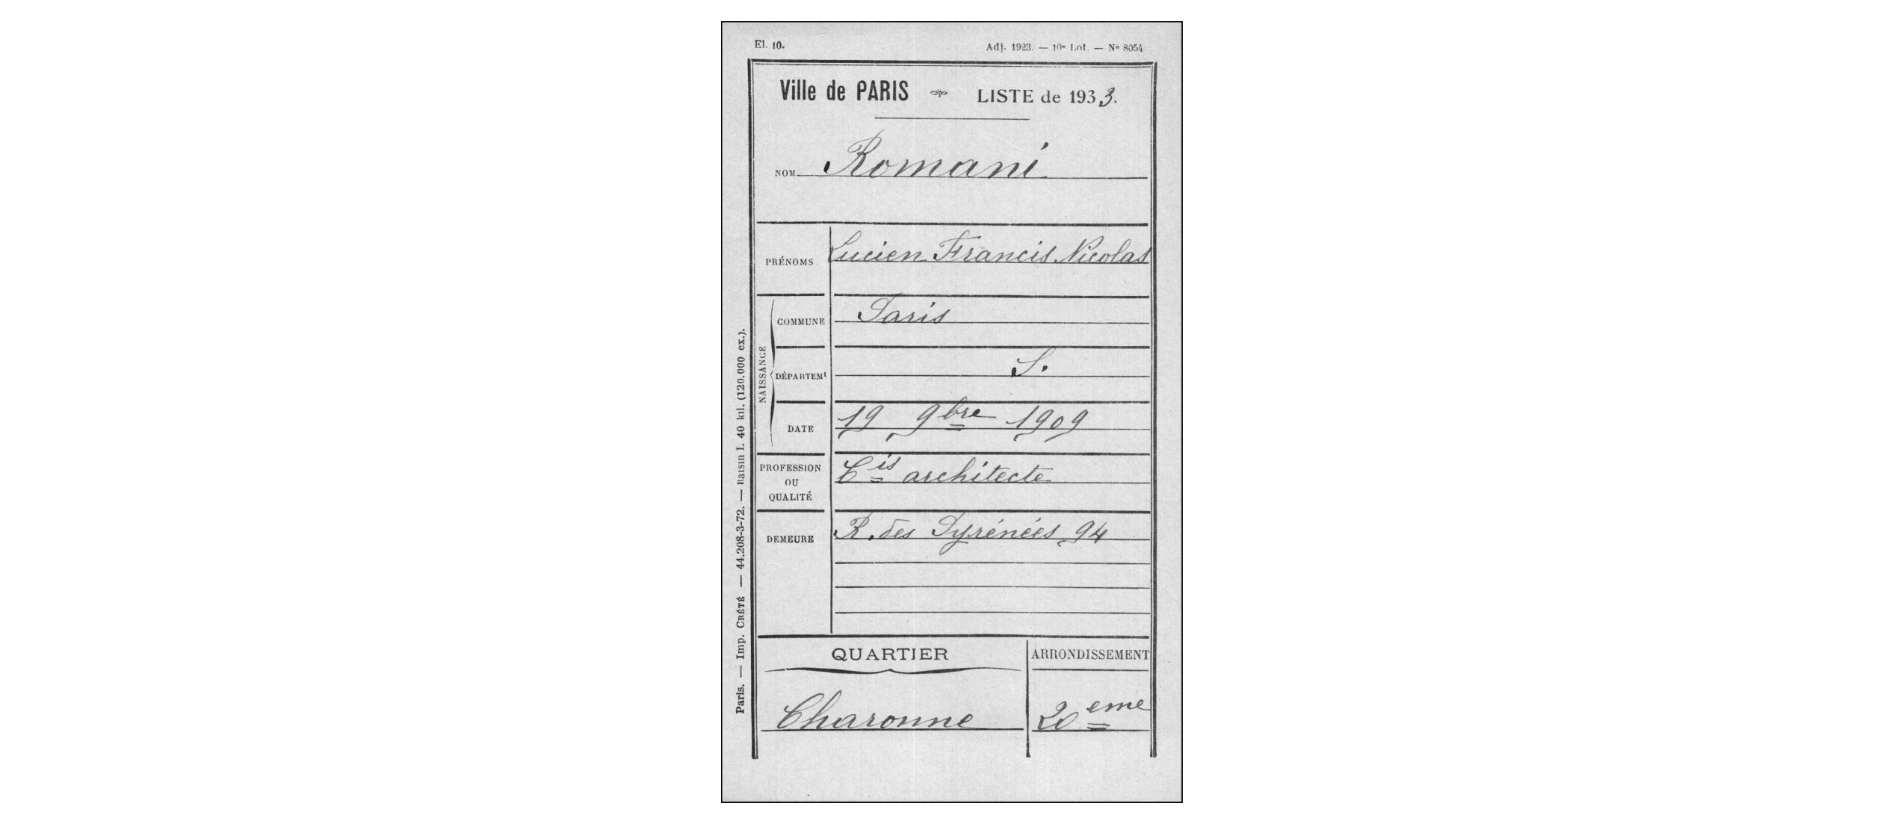 El. 10.
Adj. 1923. — 10e Lot. — No 8054
Ville de PARIS LISTE de 1933.
NOM Romani
PRÉNOMS Lucien Francis Nicolas
NAISSANCE
COMMUNE Paris
DÉPARTEMt S.
DATE 19 9bre 1909
PROFESSION
OU
QUALITÉ
Cis architecte
DEMEURE R. des Pyrénées 94
QUARTIER
ARRONDISSEMENT
Charonne
20eme
Paris. — Imp. CRÉTÉ — 44.208-3-72. — Raisin I. 40 kil. (120.000 ex.).